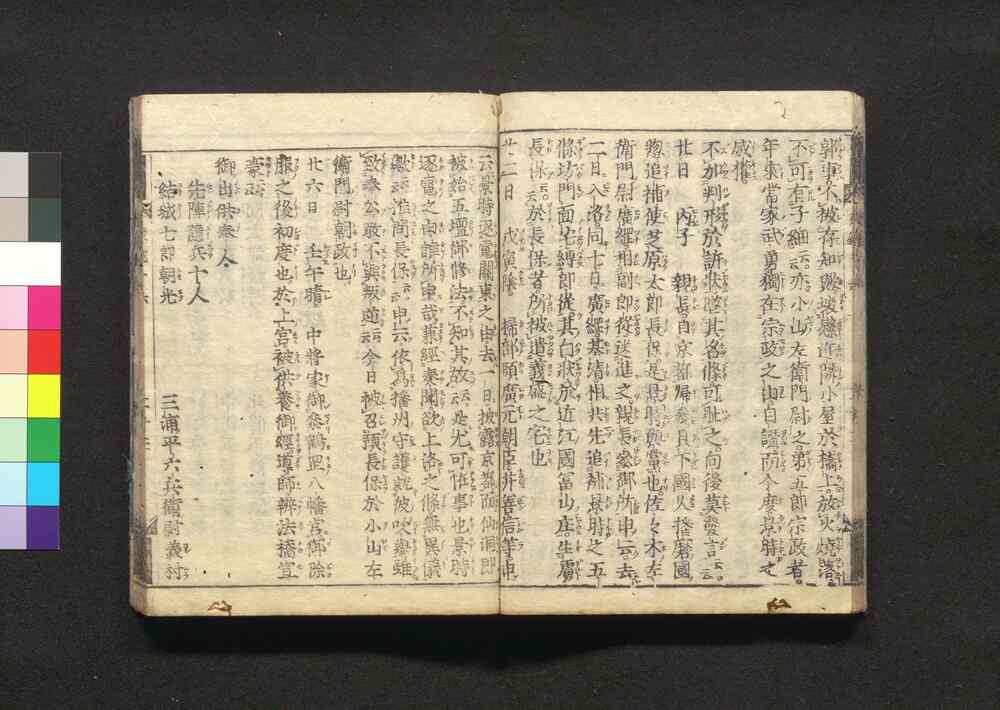 不可有子細云云亦小山左衛門尉之弟五郎宗政者
年來當家武勇獨在宗政之由自讚而今度景時之
感權
不加判形於訴狀墜其名條可耻之向後莫發言云云
廿日 丙子 親長自京都歸參
惣追捕使芝原太郎長保是景時與黨也佐々木左
衛門尉廣綱相副郎從送進之親長參御所申云去
二日入洛同七日廣綱基清相共先追捕景時之五
條坊門面宅縛郎從其白狀於近江國富山庄生虜
長保云云於長保者所被遣義盛之宅也
廿二日 戊寅陰 掃部頭廣元朝臣并善信等申
云景時逐電關東之由去 日披露京都而仙洞即
被始五壇御修法不知其故云云是尤可怪事也景時
逐電之由誰所申哉兼經奏聞欲上洛之條無異儀
歟云云惟間長保云云申云依爲播州守護就被吹擧雖
致奉公敢不與叛逆云云今日被召預長保於小山左
衛門尉朝政也
廿六日 壬午晴 中將家御參鶴岡八幡宮御除
服之後初度也於上宮被供養御經導師辨法橋宣
豪云云
御出供奉人
先陣隨兵十人
結城七郎朝光 三浦平六兵衛尉義村